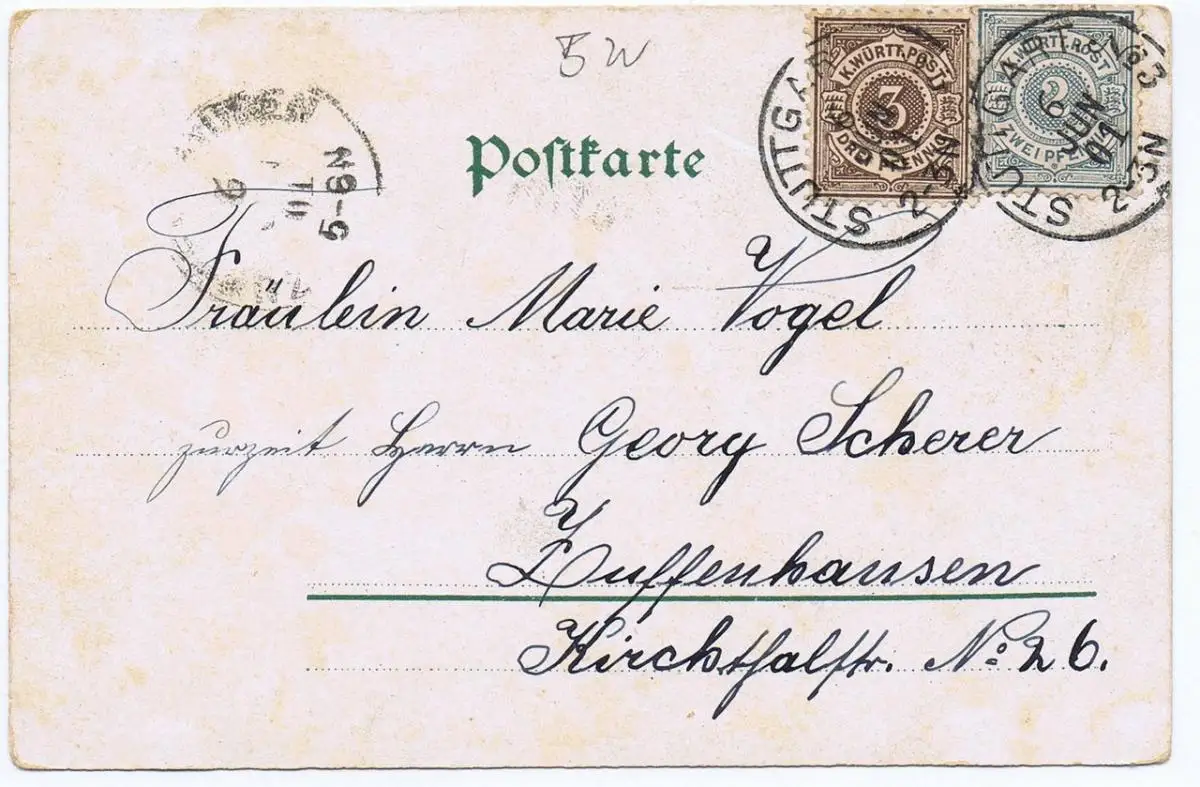 5 W
Postkarte
K.WÜRTT.POST
3
DREI PFENNIG
K.WÜRTT.POST
2
ZWEI PFENNIG
STUTTGART
2-3N
STUTTGART
6
JUN
01
2-3N
6
01
5-6N
Fräulein Marie Vogel
zurzeit Herrn Georg Scherer
Zuffenhausen
Kirchthalstr. No: 26.